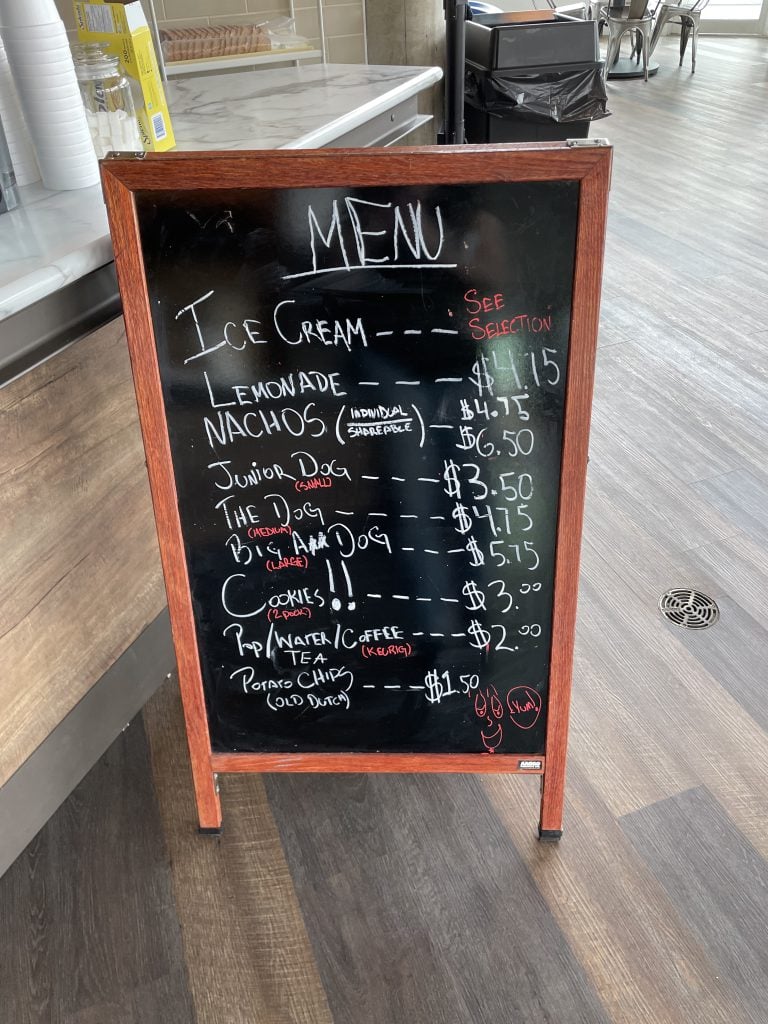 MENU
ICE CREAM --- SEE SELECTION
LEMONADE --- $4.75
NACHOS (INDIVIDUAL - $4.75
SHAREABLE) $6.50
JUNIOR DOG --- $3.50
(SMALL)
THE DOG --- $4.75
(MEDIUM)
BIG A** DOG --- $5.75
(LARGE)
COOKIES!! ---- $3.00
(2 PACK)
POP/WATER/COFFEE --- $2.00
TEA (KEURIG)
POTATO CHIPS ---- $1.50
(OLD DUTCH)
Yum!